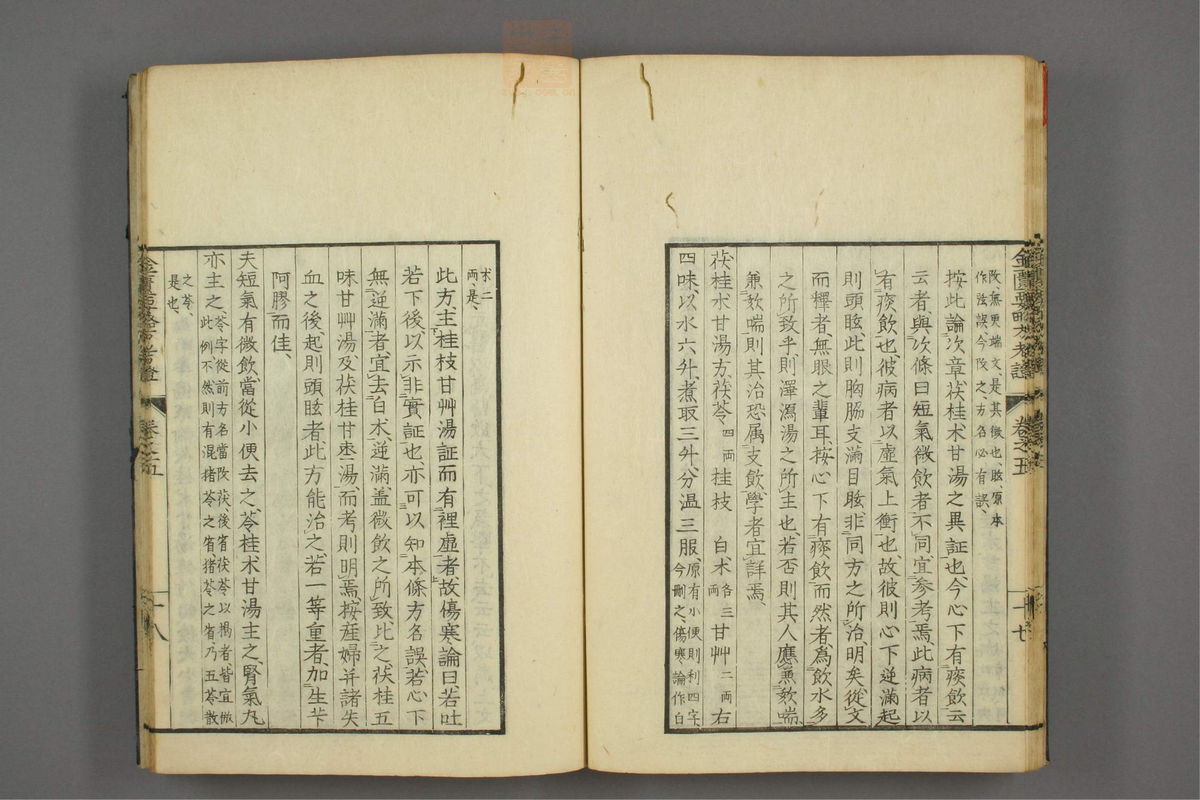 攺、無更端文、是其徵也、眩、原本
作泫誤、今攺之、方名必有誤、
按此論、次章茯桂朮甘湯之異証也、今心下有痰飲云
云者、與次條曰短氣微飲者不同、宜參考焉、此病者以
有痰飲也、彼病者以虛氣上衝也、故彼則心下逆滿起
則頭眩、此則胸脇支滿目眩、非同方之所治明矣、從文
而檡者、無眼之輩耳、按心下有痰飲而然者、爲飲水多
之所致乎、則澤瀉湯之所主也、若否則其人應兼欬喘、
兼欬喘則其治恐屬支飲、學者宜詳焉、
茯桂朮甘湯方、茯苓四両桂枝 白朮各三両甘艸二両右
四味、以水六升、煮取三升、分温三服、
原有小便則利四字、
今刪之、傷寒論作白
金匱要略方考證 卷之五 十七
朮二
両、是、
此方主桂枝甘艸湯証而有裡虛者、故傷寒論曰若吐
若下後、以示非實証也、亦可以知本條方名誤、若心下
無逆滿者、宜去白朮、逆滿、盖微飲之所致、比之茯桂五
味甘艸湯及茯桂甘棗湯、而考則明焉、按産婦并諸失
血之後、起則頭眩者、此方能治之、若一等重者、加生芐
阿膠而佳、
夫短氣有微飲、當從小便去之、苓桂朮甘湯主之、腎氣丸
亦主之、
苓字從前方名當攺茯、後畨茯苓以揭者、皆宜倣
此例、不然則有混猪苓之畨、猪苓之畨、乃五苓散
之苓、
是也、
金匱要略方考證 卷之五 十八